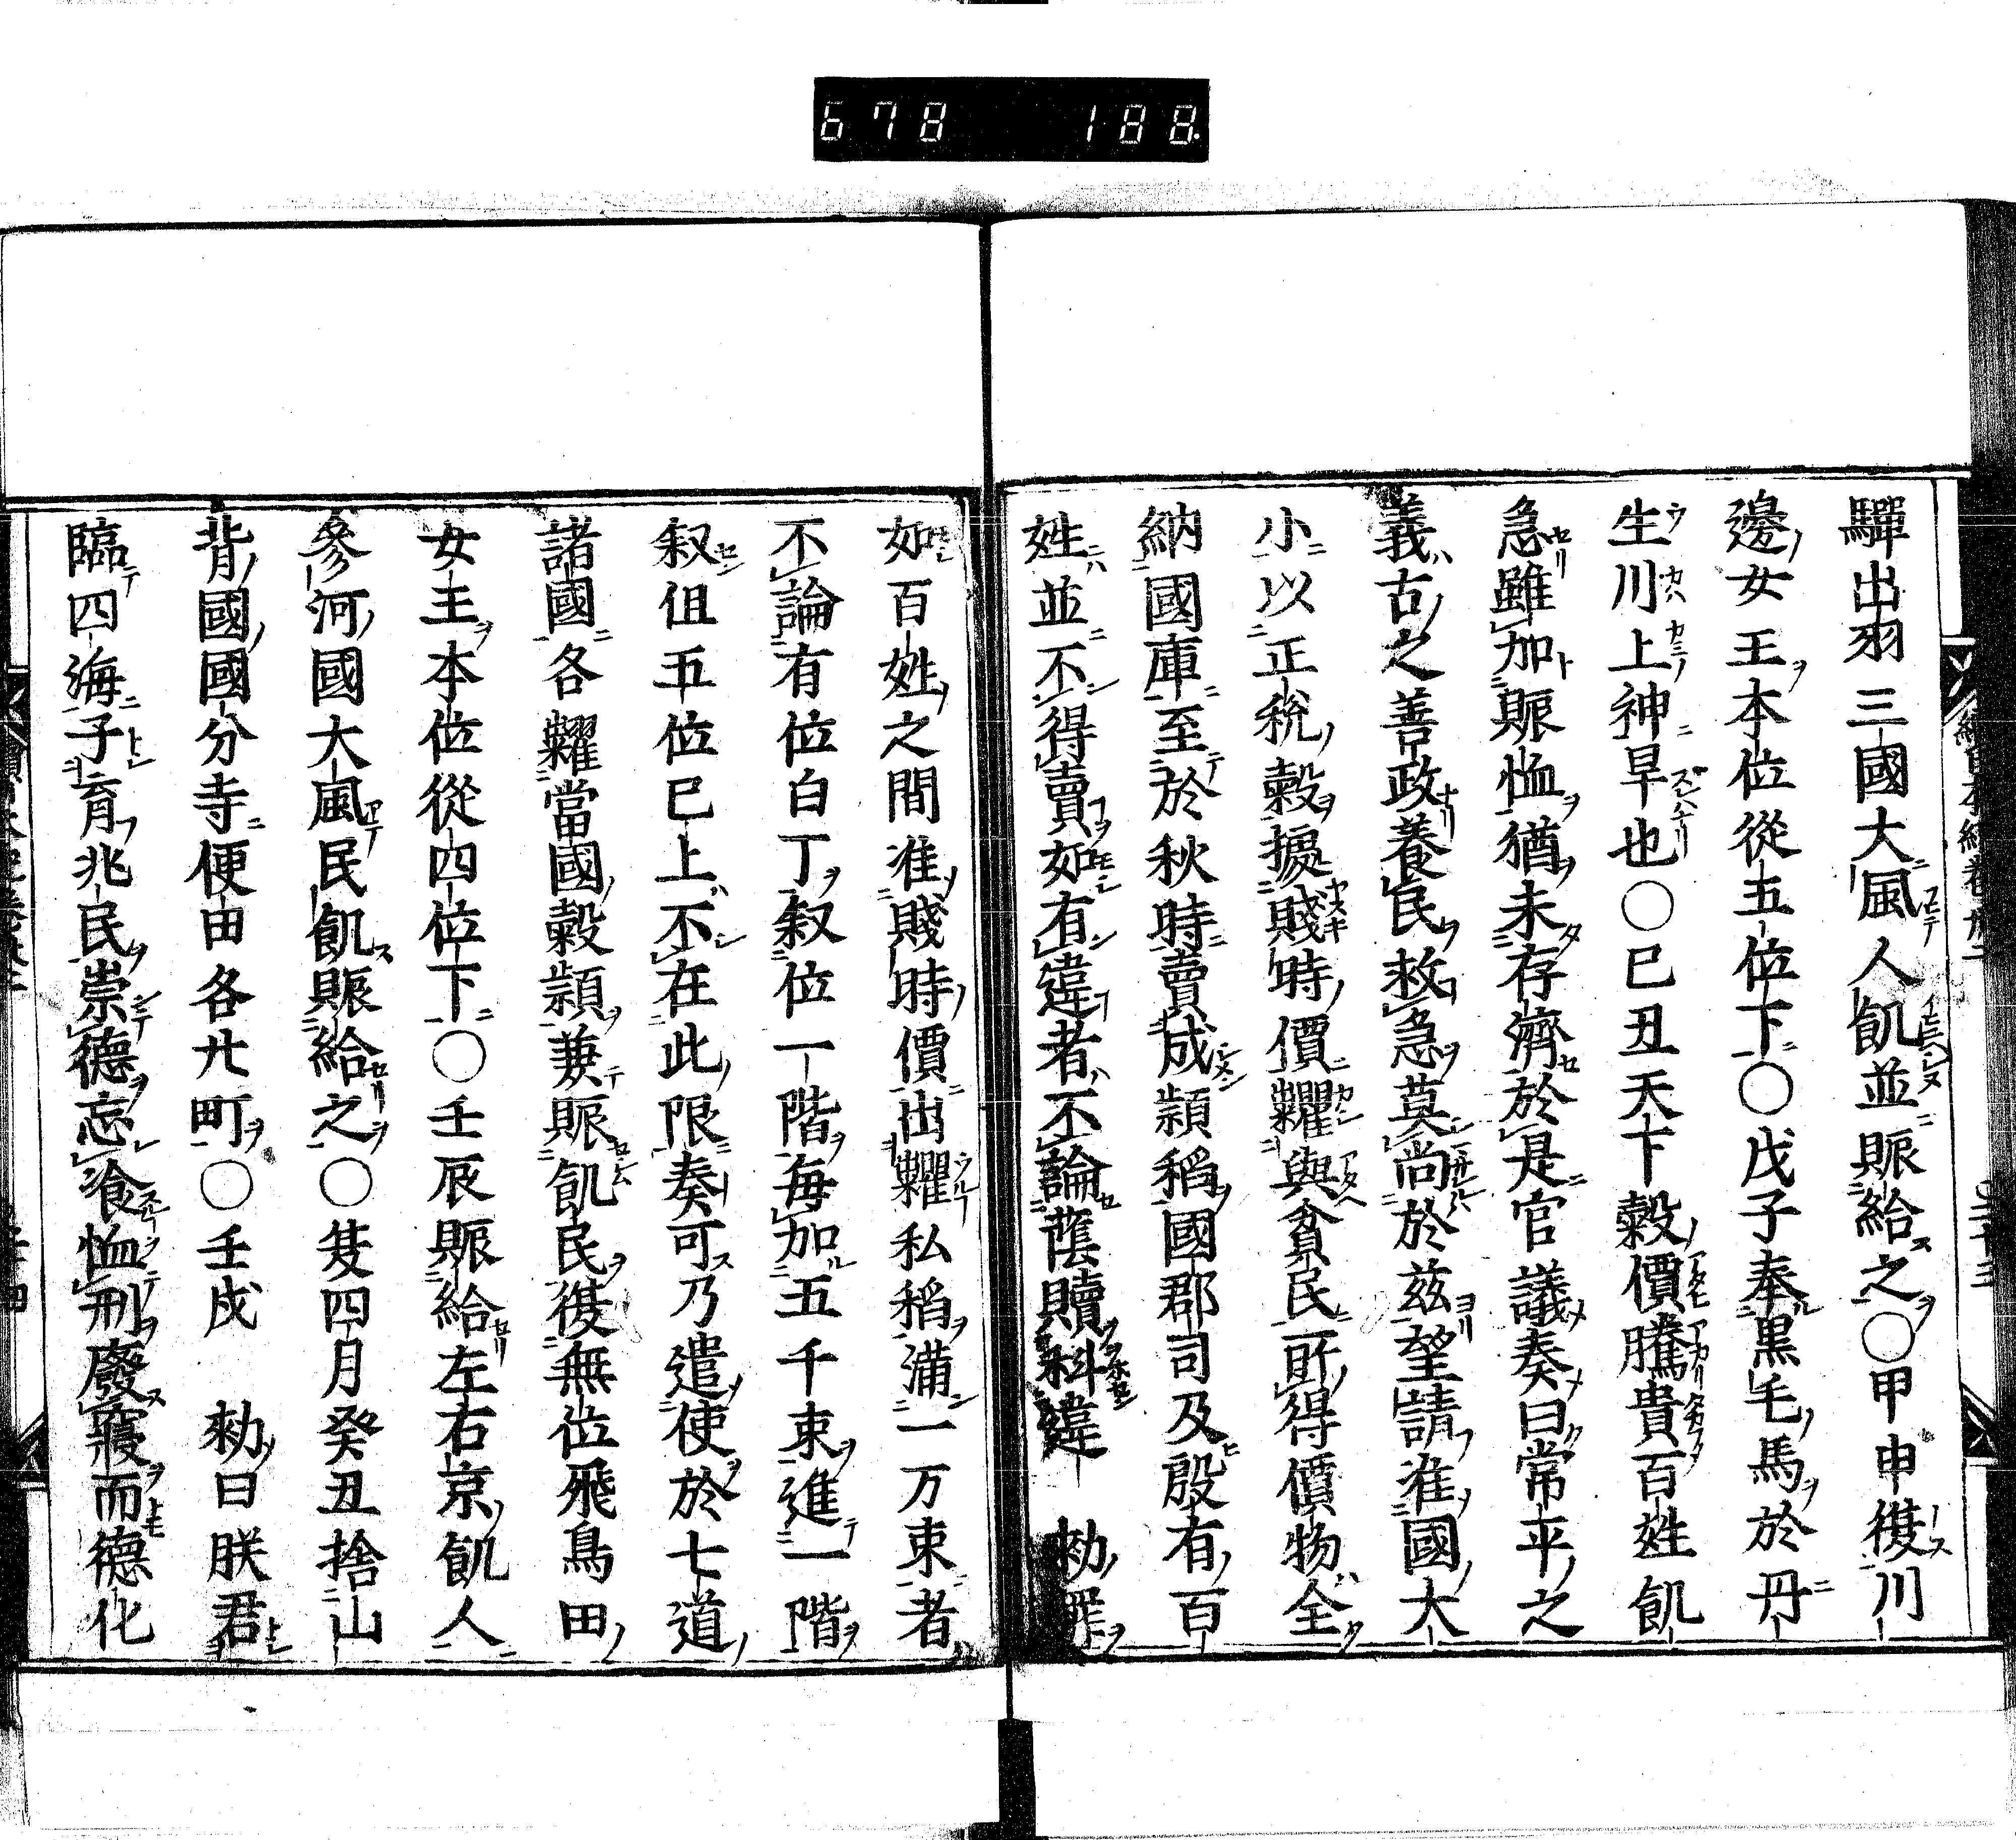 678 188
驒出羽三國大風人飢並賑給之〇甲申復川
邊女王本位從五位下〇戊子奉黒毛馬於丹
生川上神旱也〇巳丑天下穀價騰貴百姓飢
急雖加賑恤猶未存濟於是官議奏曰常平之
義古之善政養民救急莫尚於茲望請准國大
小以正稅穀據賤時價糶與貧民所得價物全
納國庫至於秋時賣成頴稻國郡司及殷有百
姓並不得賣如有違者不論蔭贖科違勅罪
如百姓之間准賤時價出糶私稻滿一万束者
不論有位白丁叙位一階每加五千束進一階
叙但五位已上不在此限奏可乃遣使於七道
諸國各糶當國穀頴兼賑飢民復無位飛鳥田
女王本位從四位下〇壬辰賑給左右京飢人
參河國大風民飢賑給之〇夏四月癸丑捨山
背國國分寺便田各廿町〇壬戌　勅曰朕君
臨四海子育兆民崇德忘飡恤刑廢寢而德化